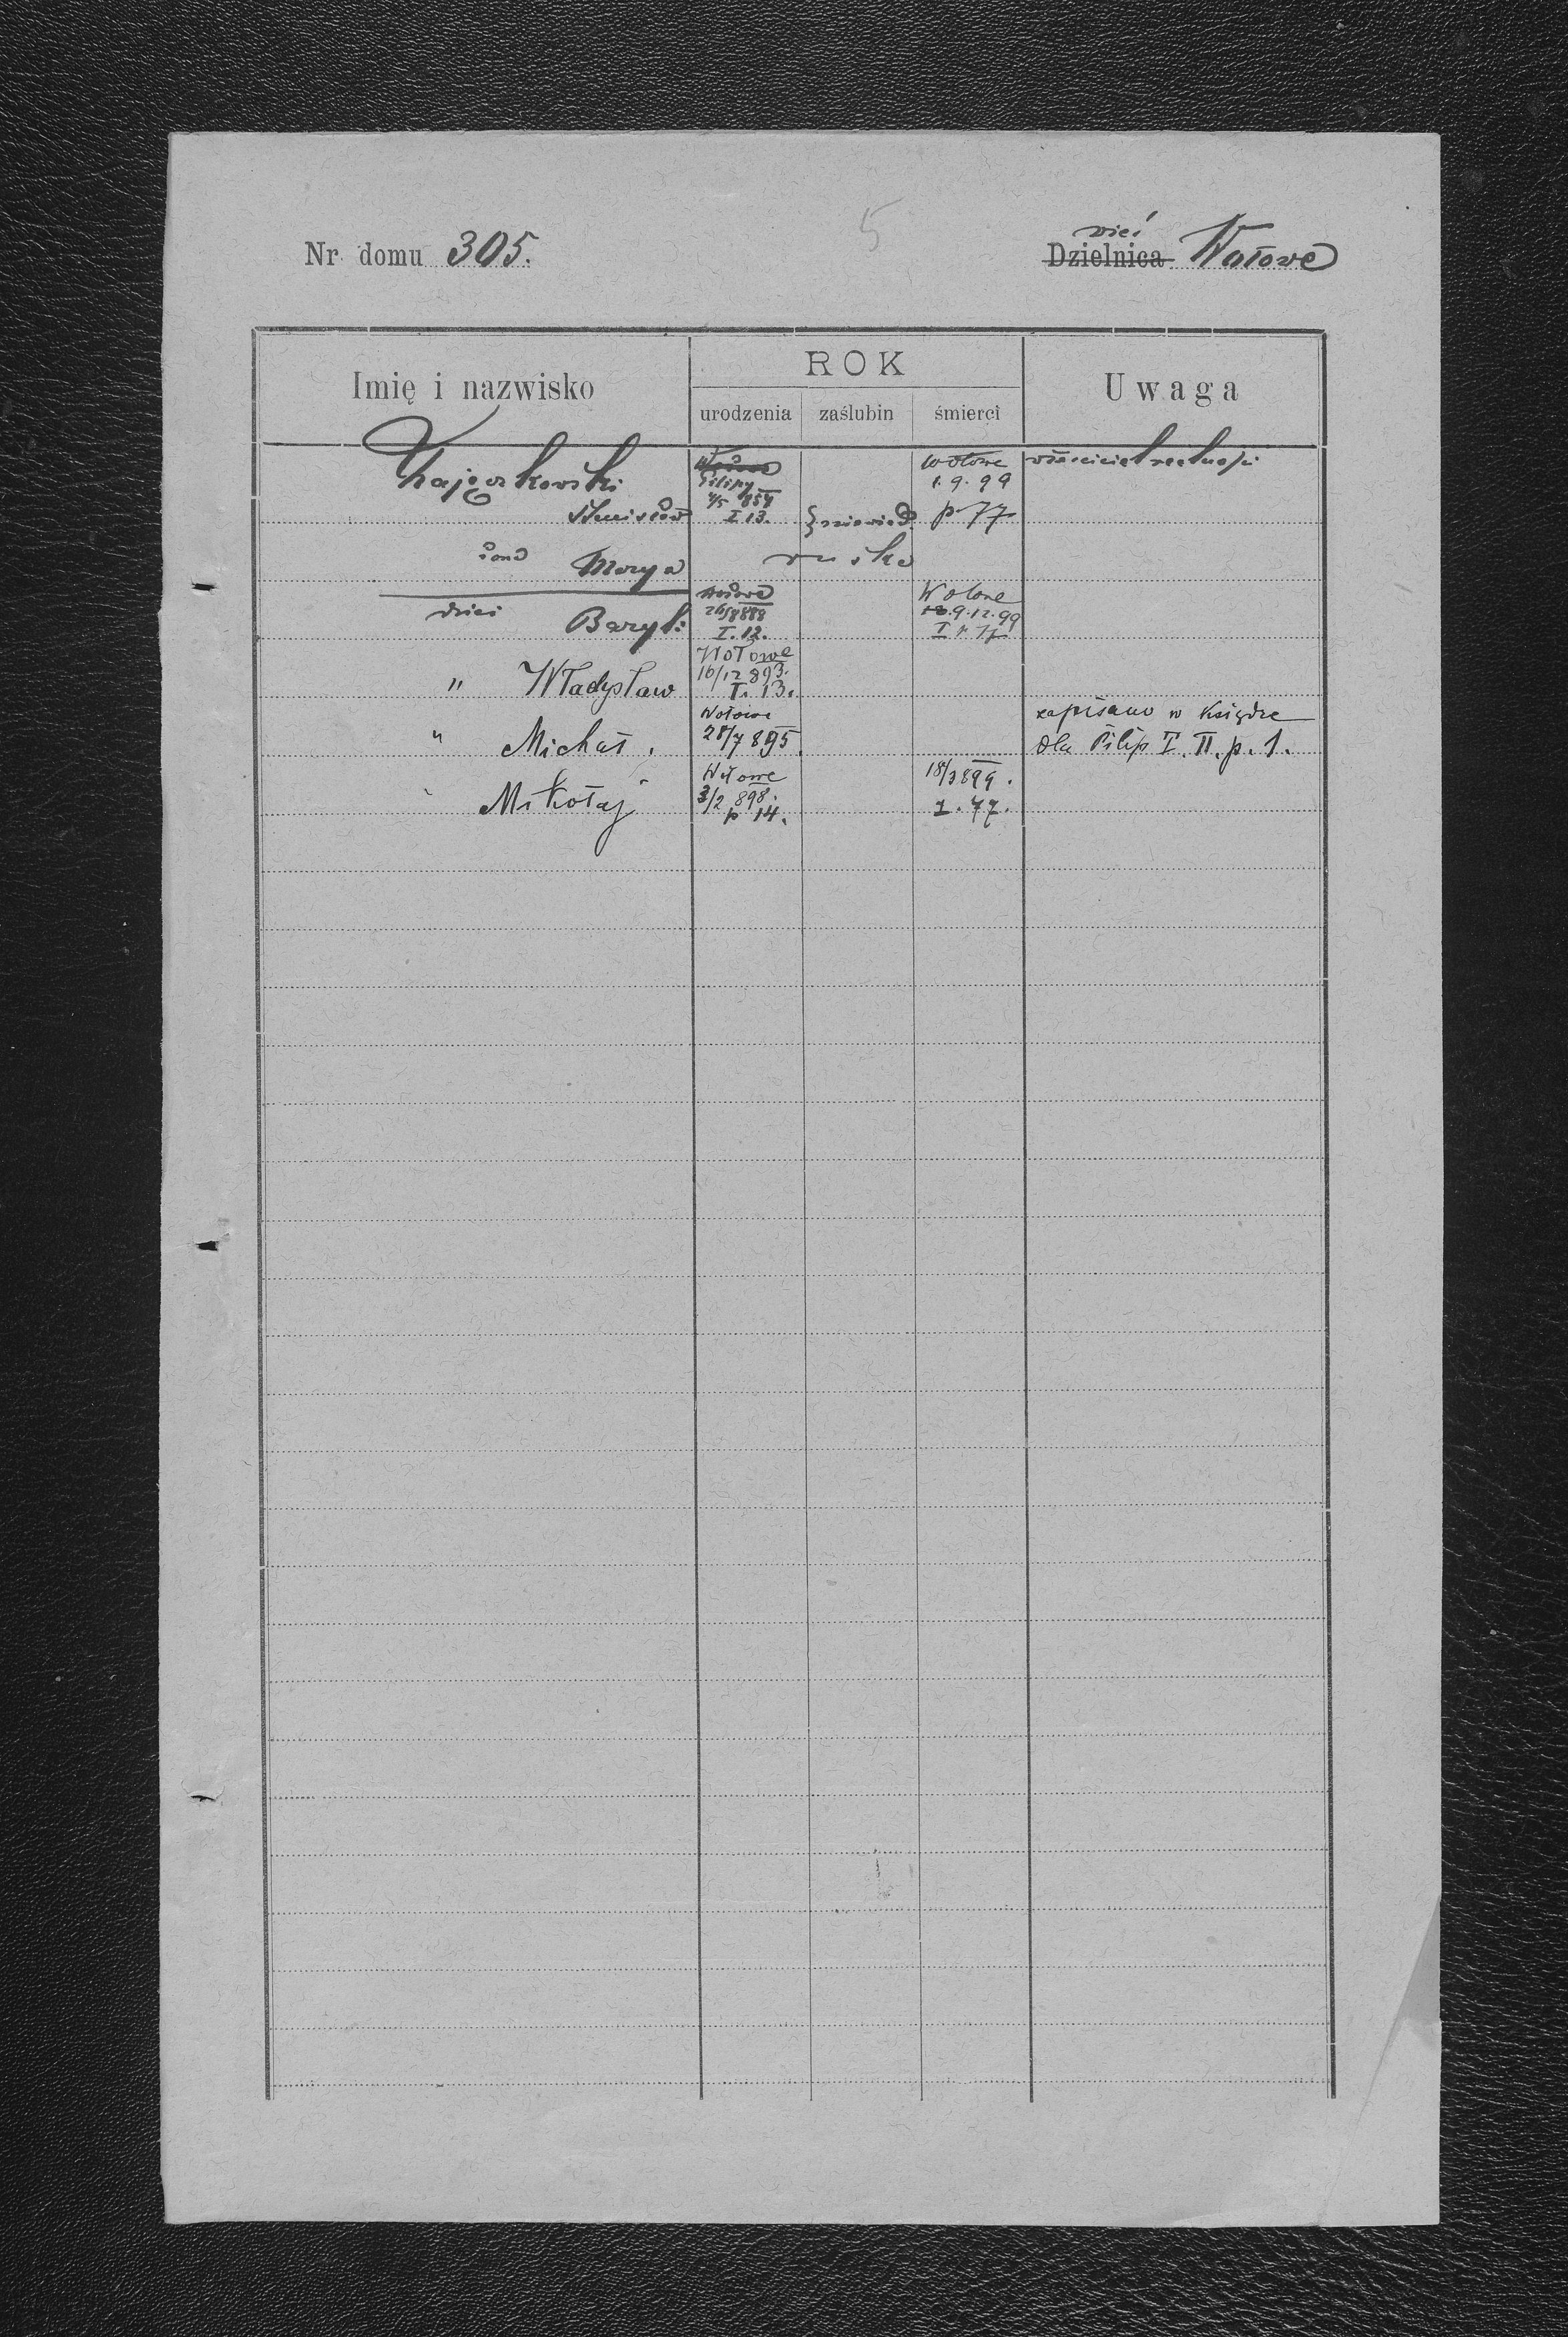 5
wieś
Nr domu 305. Dzielnica Wołowe
Imię i nazwisko
ROK
urodzenia zaślubin śmierci
Uwaga
Zajączkowski
Wołowe
1.9.99
Stanisław
I 13.
p 77
żona Marya
ruska
dzieci Bazyli
Wołowe
26/8 888
I. 12.
Wołowe
9.12.99
" Władysław
Wołowe
16/12 893.
I. 13.
" Michał.
Wołowe
28/7 895.
zapisano w Księdze
dla Filip I. II. p. 1.
" Mikołaj
Wołowe
3/2 898.
p 14.
18/3 899.
I. 77.